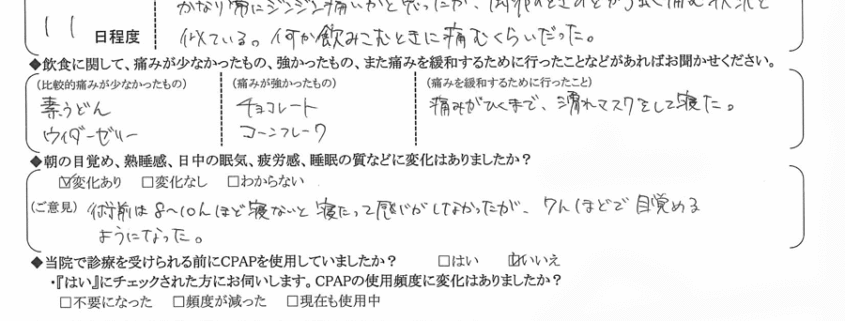 かなり常にジンジン痛いかと思ったが、
11 日程度 似ている。何か飲みこむときに痛むくらいだった。
◆飲食に関して、痛みが少なかったもの、痛みが強かったもの、また痛みを緩和するために行ったことなどがあればお聞かせください。
(比較的痛みが少なかったもの) (痛みが強かったもの) (痛みを緩和するために行ったこと)
素うどん チョコレート 痛みがひくまで、濡れマスクをして寝た。
ウイダーゼリー コーンフレーク
◆朝の目覚め、熟睡感、日中の眠気、疲労感、睡眠の質などに変化はありましたか?
☑変化あり □変化なし □わからない
(ご意見) 術前は8〜10hほど寝ないと寝たって感じがしなかったが、7hほどで目覚める
ようになった。
◆当院で診療を受けられる前にCPAPを使用していましたか? □はい ☑いいえ
・『はい』にチェックされた方にお伺いします。CPAPの使用頻度に変化はありましたか?
□不要になった □頻度が減った □現在も使用中